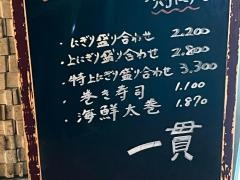 ・にぎり盛り合わせ 2.200
・上にぎり盛り合わせ 2.800
・特上にぎり盛り合わせ 3.300
・巻き寿司 1.100
・海鮮太巻 1.870
一貫